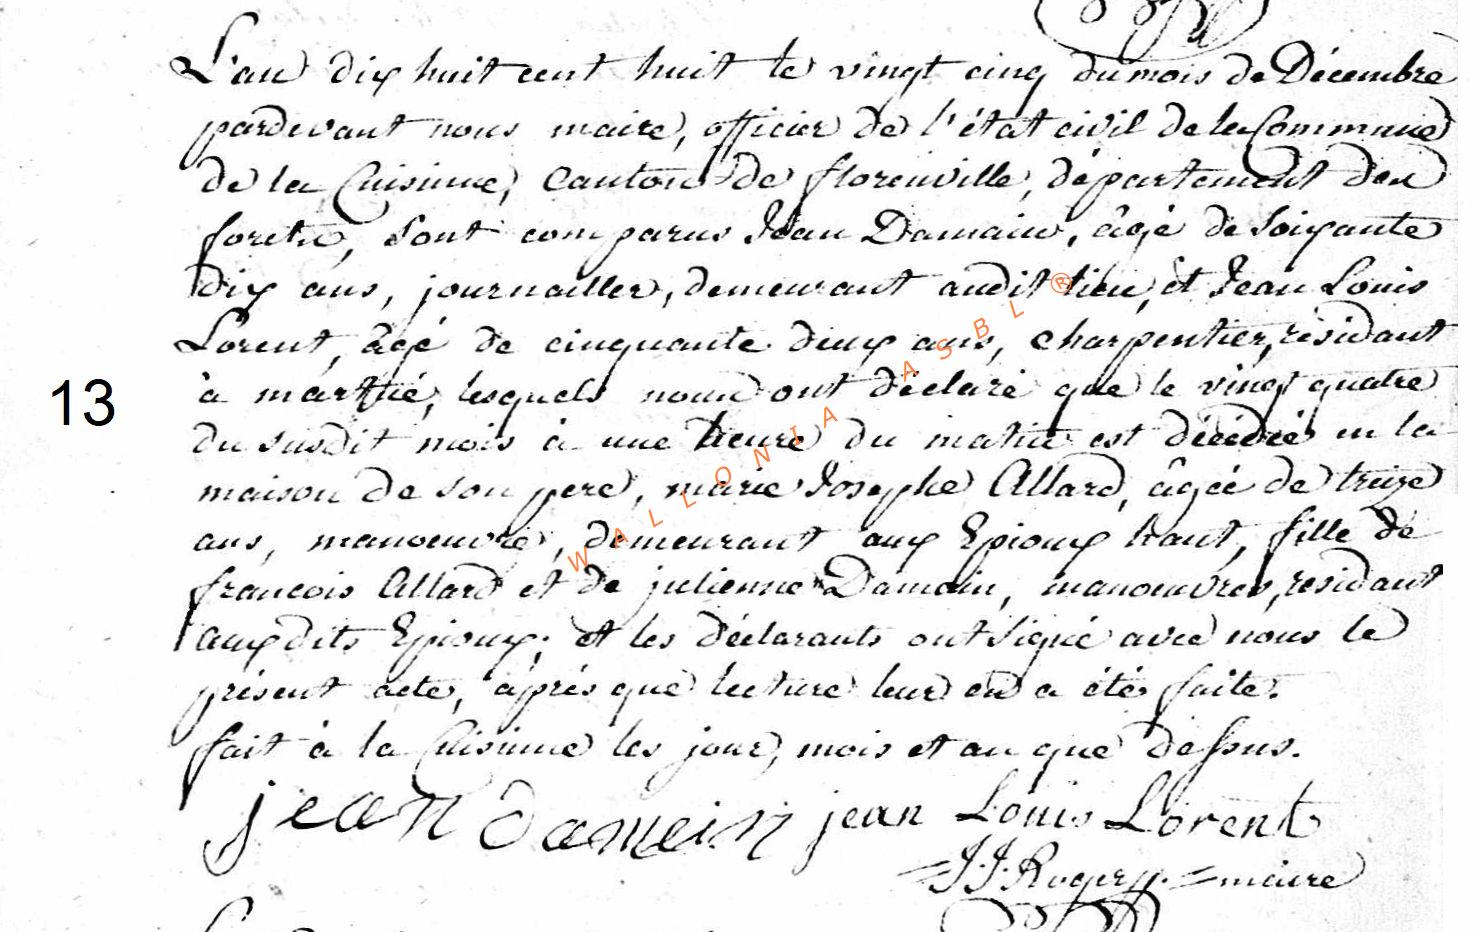 L'an dix huit cent huit le vingt cinq du mois de Décembre
pardevant nous maire, officier de l'état civil de la Commune
de la Cuisinne, Canton de florenville, département des
foretz, sont comparus Jean Damain, âgé de soixante
dix ans, journailler, demeurant audit lieu, et Jean Louis
Lorent, âgé de cinquante deux ans, charpentier, résidant
13
à martué, lesquels nous ont déclaré que le vingt quatre
du susdit mois à une heure du matin est décédée en la
maison de son pere, marie Josephe Allard, âgée de treize
ans, manoeuvre, demeurant aux Epioux haut, fille de
francois Allard et de julienne Damain, manoeuvres, residant
auxdits Epioux; et les déclarants ont signé avec nous le
présent acte, après que lecture leur en a été faite.
fait à la Cuisinne les jour, mois et an que dessus.
jean damein jean Louis Lorent
J. J. Rogery. maire
WALLONIA ASBL ®